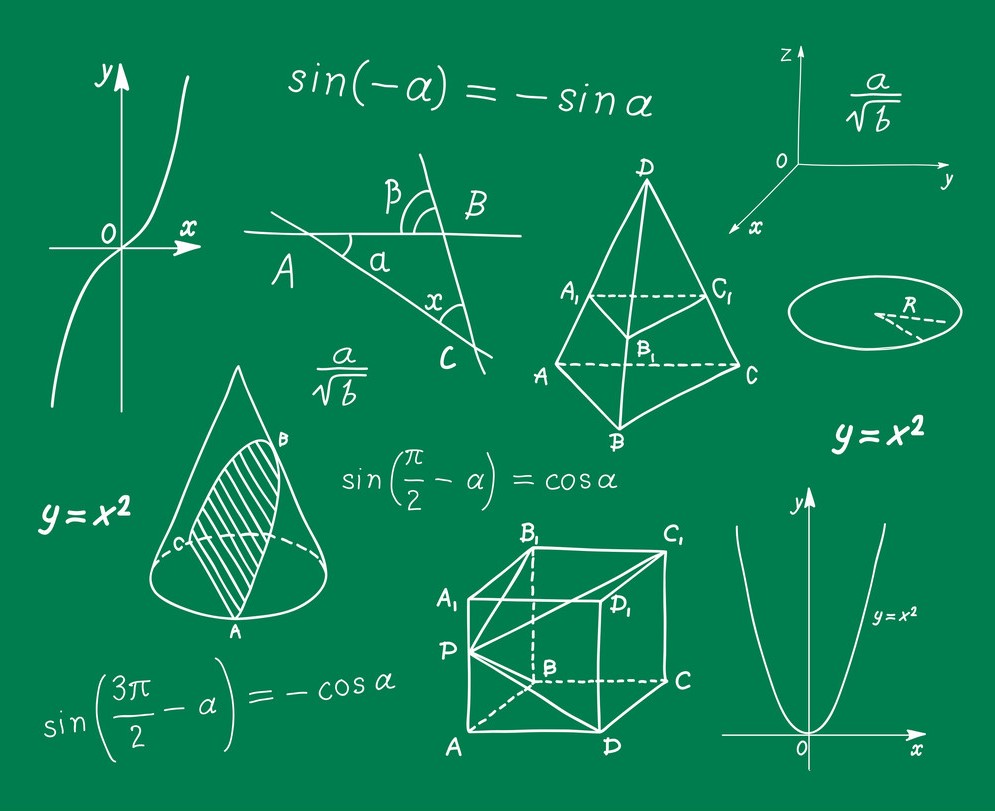 y
x
0
sin(-a) = -sin a
z
0
y
x
a/√b
β
B
A
a
x
C
D
A₁
C₁
B₁
A
C
B
R
a/√b
y=x²
B
C
A
y=x²
sin(π/2 - a) = cos a
B₁
C₁
A₁
D₁
P
B
C
A
D
y
y=x²
0
x
sin(3π/2 - a) = - cos a